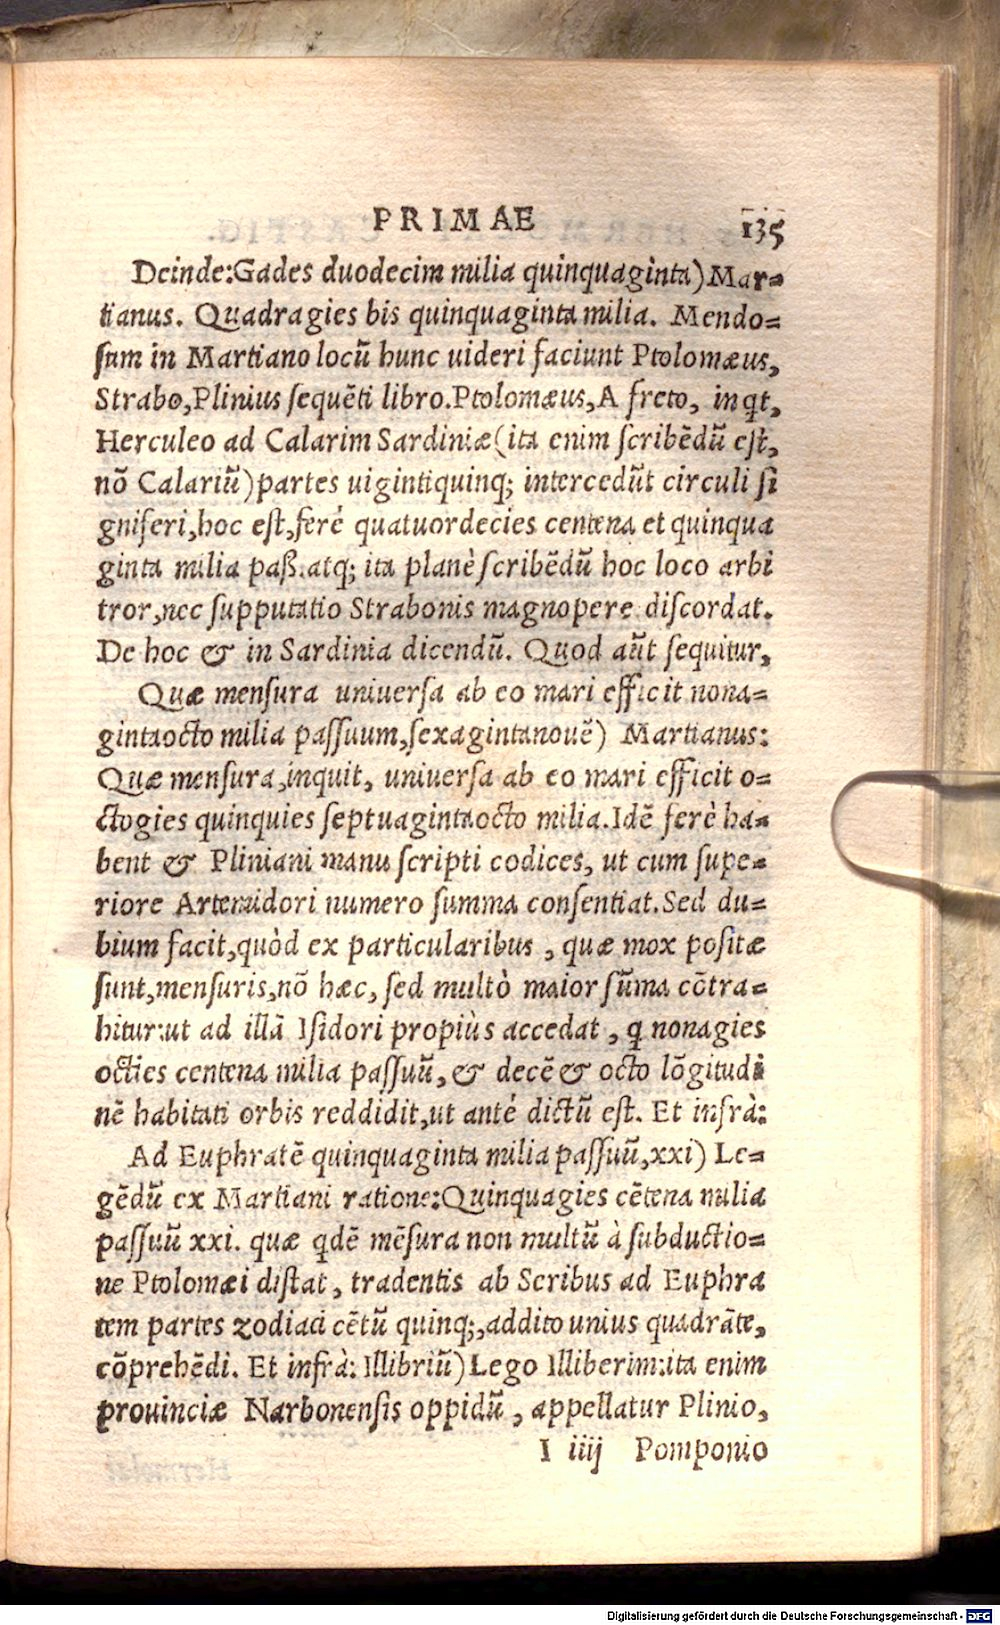 PRIMAE 135
Deinde:Gades duodecim milia quinquaginta)Mar=
tianus. Quadragies bis quinquaginta milia. Mendo=
sum in Martiano locū hunc uideri faciunt Ptolomæus,
Strabo,Plinius sequēti libro.Ptolomæus,A freto, inqt,
Herculeo ad Calarim Sardiniæ(ita enim scribēdū est,
nō Calariū)partes uigintiquinq; intercedūt circuli si
gniferi,hoc est,ferè quatuordecies centena et quinqua
ginta milia paß.atq; ita planè scribēdū hoc loco arbi
tror,nec supputatio Strabonis magnopere discordat.
De hoc & in Sardinia dicendū. Quod aūt sequitur,
Quæ mensura uniuersa ab eo mari efficit nona=
gintaocto milia passuum,sexagintanouē) Martianus:
Quæ mensura,inquit, uniuersa ab eo mari efficit o=
ctogies quinquies septuagintaocto milia.Idē ferè ha=
bent & Pliniani manu scripti codices, ut cum supe=
riore Artemidori numero summa consentiat.Sed du=
bium facit,quòd ex particularibus , quæ mox positæ
sunt,mensuris,nō hæc, sed multò maior sūma cōtra=
hitur:ut ad illā Isidori propiùs accedat , q nonagies
octies centena milia passuū, & decē & octo lōgitudi
nē habitati orbis reddidit,ut antè dictū est. Et infrà:
Ad Euphratē quinquaginta milia passuū,xxi) Le=
gēdū ex Martiani ratione:Quinquagies cētena milia
passuū xxi. quæ qdē mēsura non multū à subductio=
ne Ptolomæi distat, tradentis ab Scribus ad Euphra
tem partes zodiaci cētū quinq;,addito unius quadrāte,
cōprehēdi. Et infrà: Illibriū)Lego Illiberim:ita enim
prouinciæ Narbonensis oppidū , appellatur Plinio,
I iiij Pomponio
Digitalisierung gefördert durch die Deutsche Forschungsgemeinschaft - DFG